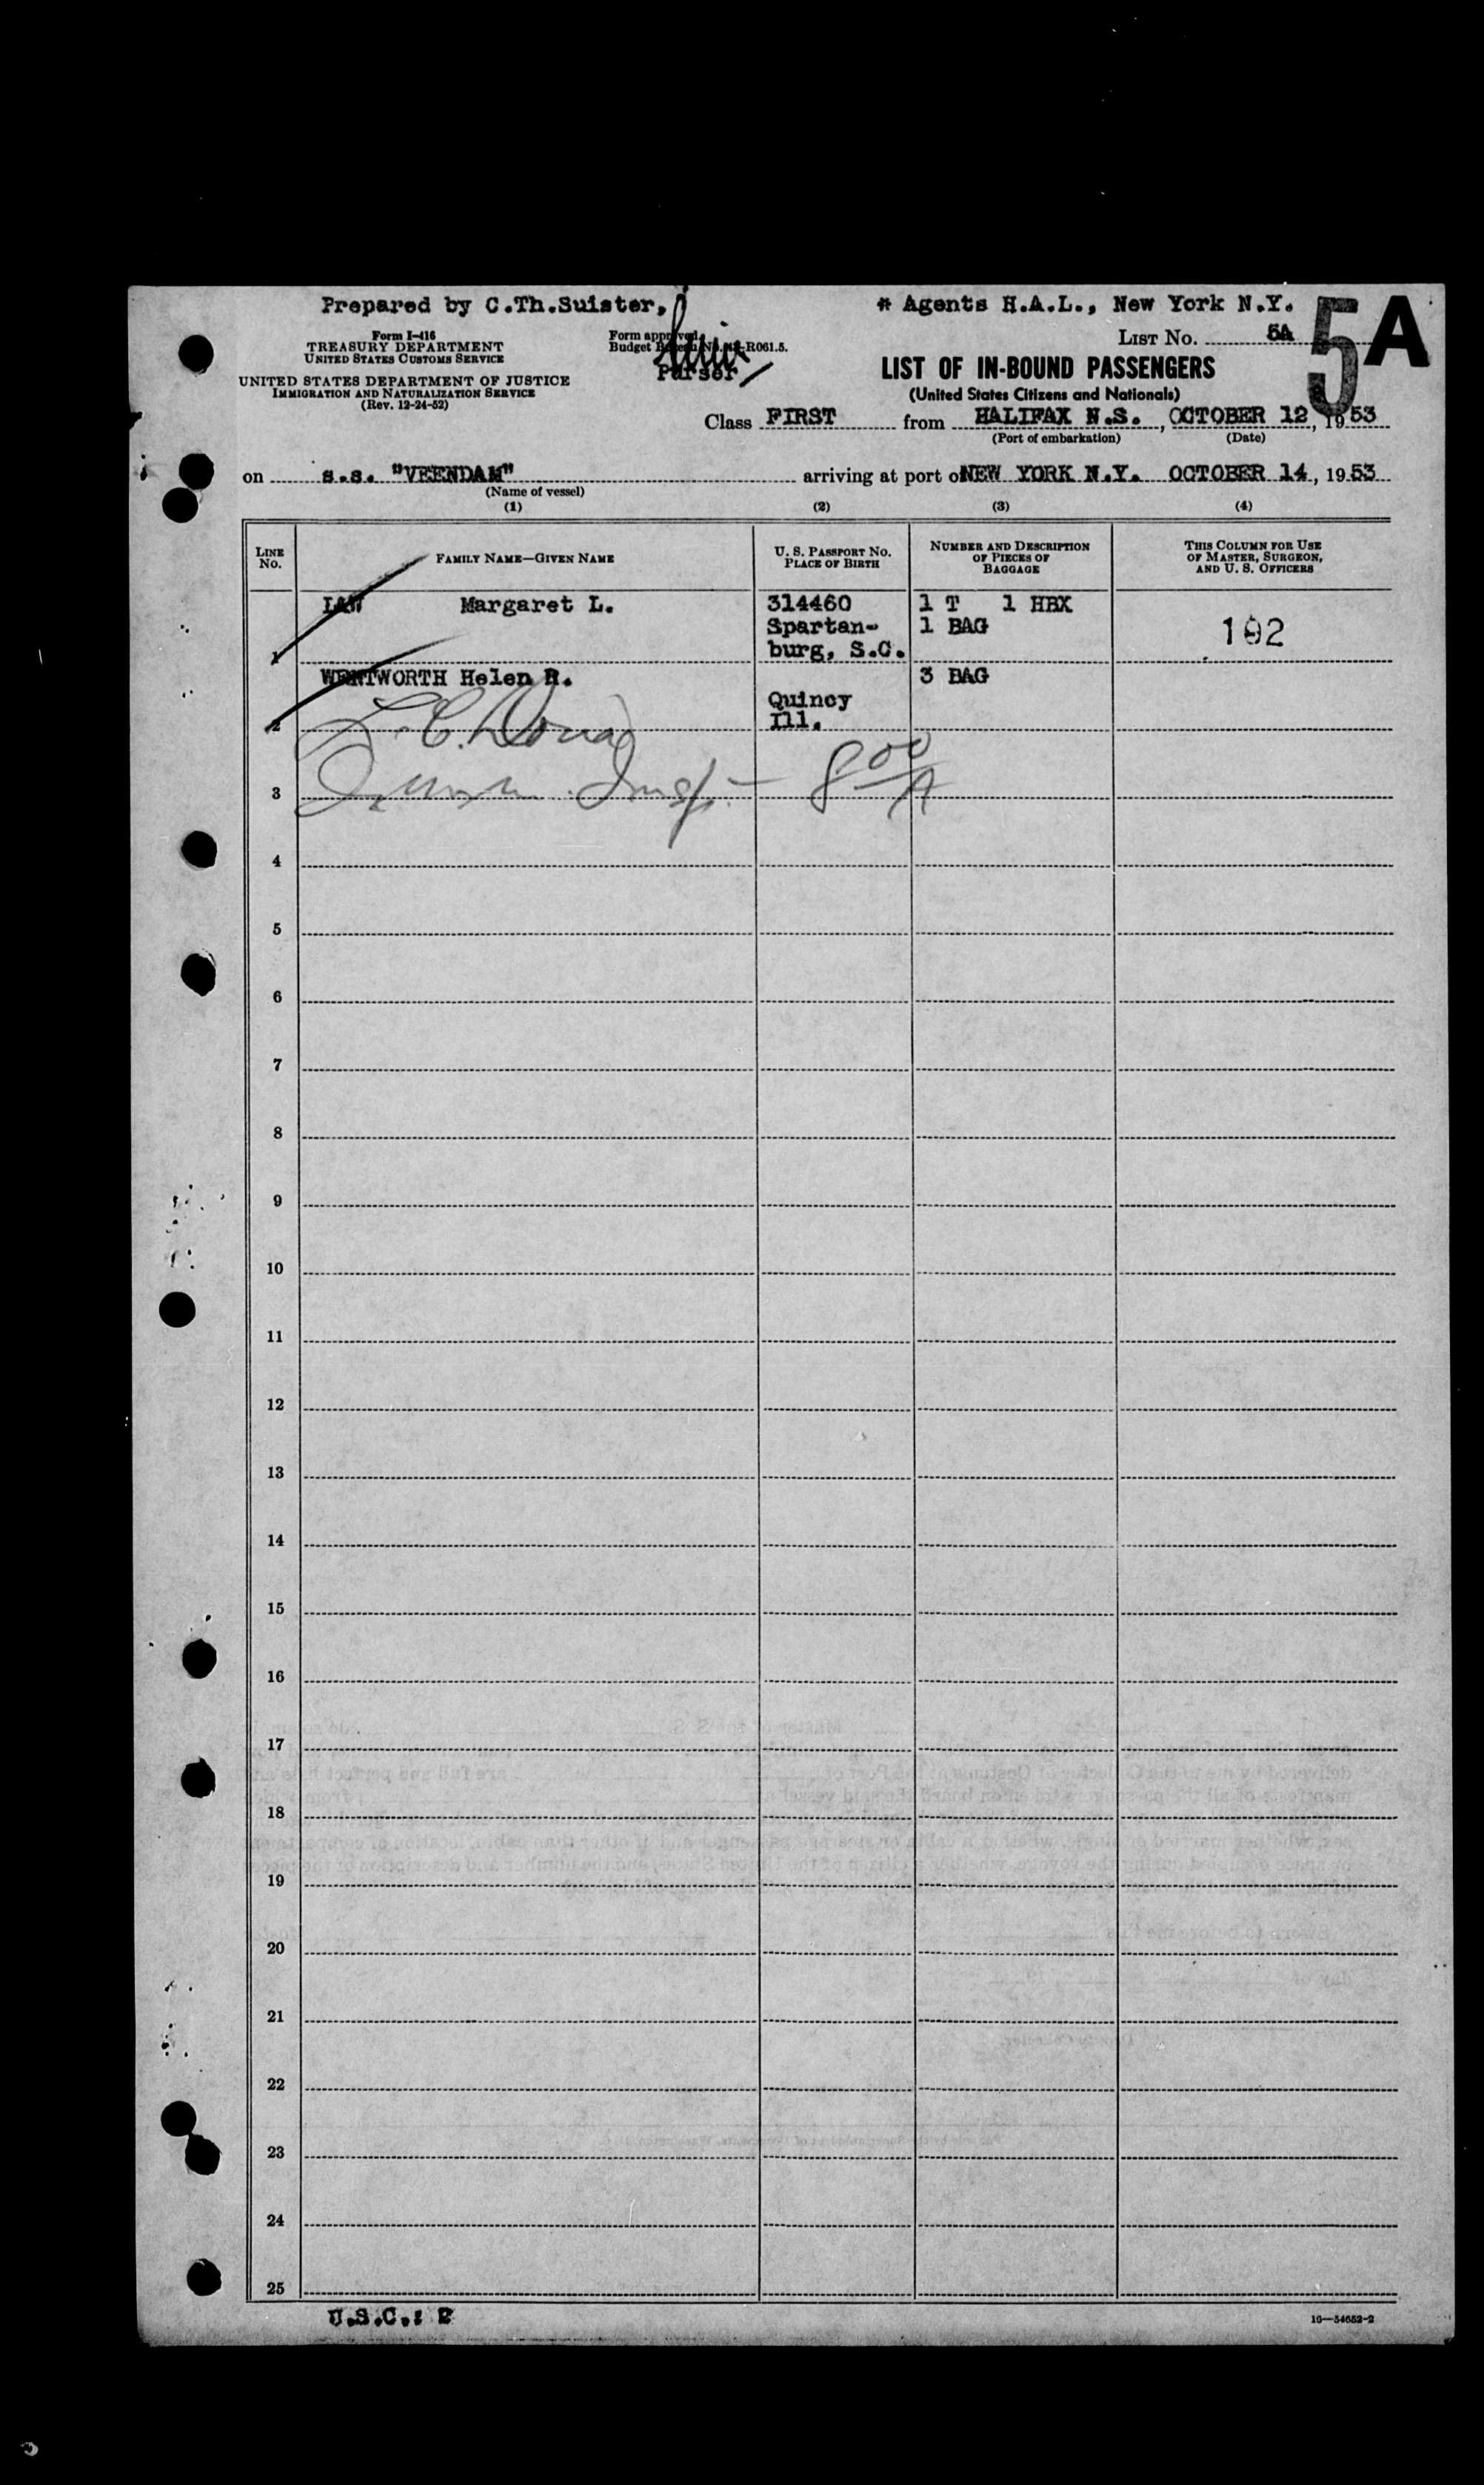 Prepared by C.Th.Suister,
* Agents H.A.L., New York N.Y.
5A
Form I-416
TREASURY DEPARTMENT
UNITED STATES CUSTOMS SERVICE
UNITED STATES DEPARTMENT OF JUSTICE
IMMIGRATION AND NATURALIZATION SERVICE
(Rev. 12-24-52)
Form approved.
Budget Bureau No. 43-R061.5.
Purser
LIST NO. 5A
LIST OF IN-BOUND PASSENGERS
(United States Citizens and Nationals)
Class FIRST from HALIFAX N.S., OCTOBER 12, 1953
(Port of embarkation) (Date)
on s.s. "VEENDAM" arriving at port of NEW YORK N.Y. OCTOBER 14, 1953
(Name of vessel)
(1) (2) (3) (4)
LINE NO.
FAMILY NAME—GIVEN NAME
U. S. PASSPORT NO.
PLACE OF BIRTH
NUMBER AND DESCRIPTION
OF PIECES OF
BAGGAGE
THIS COLUMN FOR USE
OF MASTER, SURGEON,
AND U. S. OFFICERS
LAW Margaret L. 314460 1 T 1 HBX
Spartan- 1 BAG 192
1 burg, S.C.
WENTWORTH Helen R. 3 BAG
Quincy
2 Ill.
3 Insp. 8 00/A
4
5
6
7
8
9
10
11
12
13
14
15
16
17
18
19
20
21
22
23
24
25
U.S.C.: 2
16—54652-2